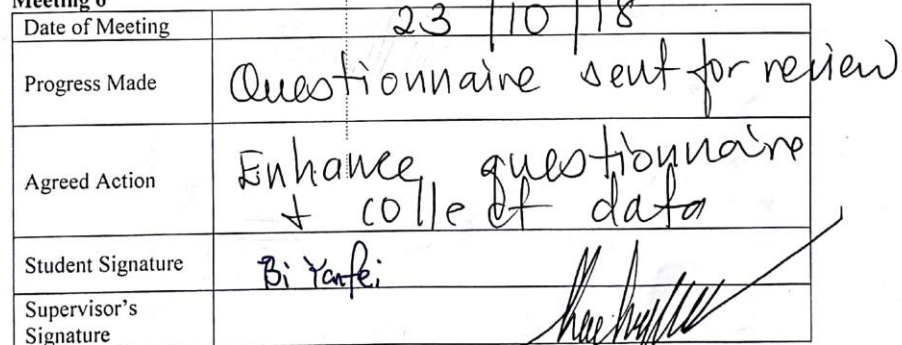 Meeting 6
Date of Meeting 23/10/18
Progress Made Questionnaire sent for review
Agreed Action Enhance questionnaire
+ collect data
Student Signature Bi Yanfei
Supervisor's
Signature